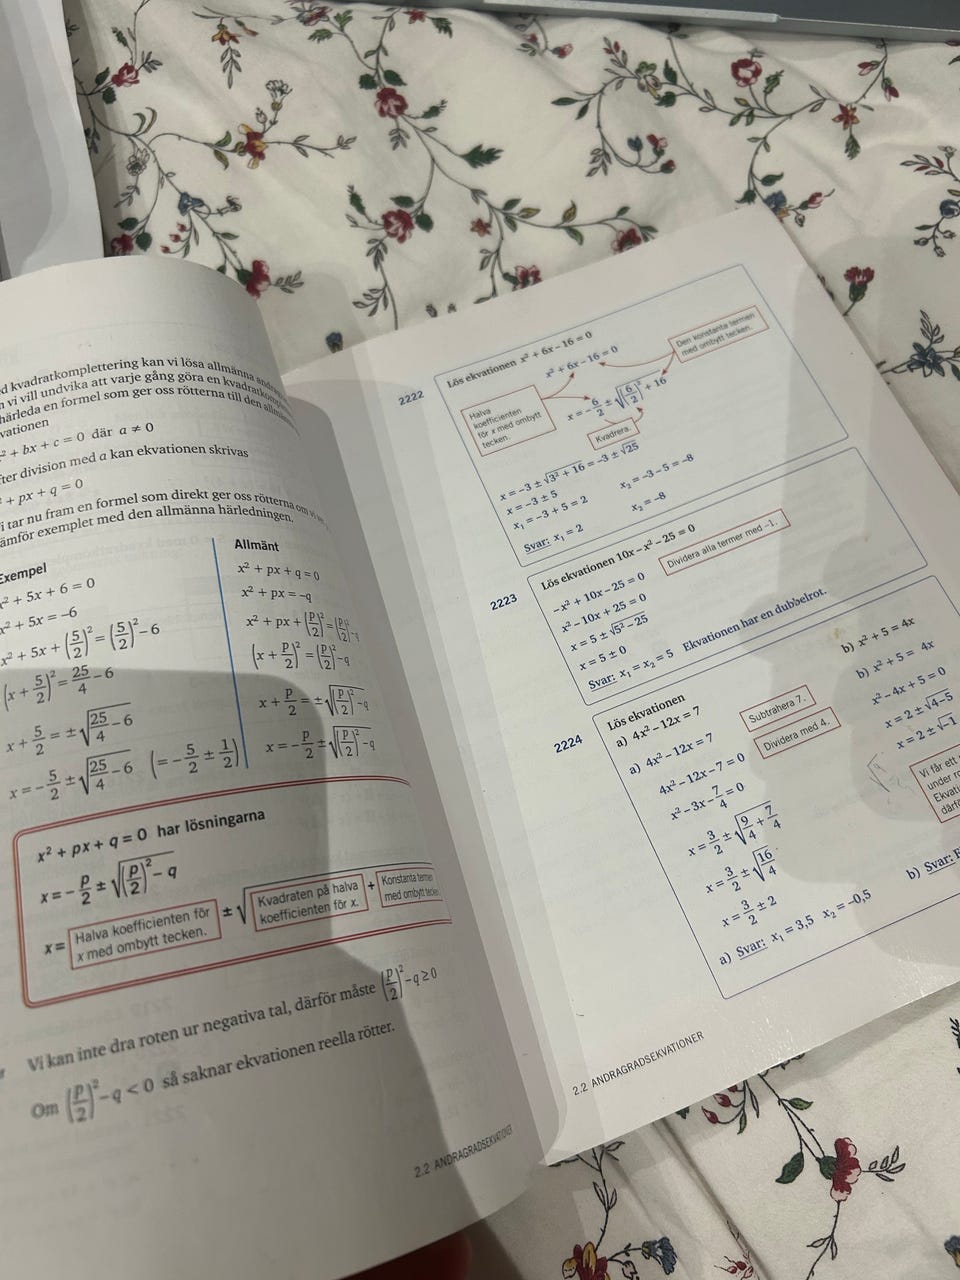 kvadratkomplettering kan vi lösa allmänna
vi vill undvika att varje gång göra en
härleda en formel som ger oss rötterna till den
x² + bx + c = 0 där a ≠ 0
division med a kan ekvationen skrivas
+ px + q = 0
tar nu fram en formel som direkt ger oss rötterna
exemplet med den allmänna härledningen.
Exempel
x² + 5x + 6 = 0
x² + 5x = −6
x² + 5x + (5/2)² = (5/2)² − 6
(x + 5/2)² = 25/4 − 6
x + 5/2 = ±√(25/4 − 6)
x = −5/2 ± √(25/4 − 6) (= −5/2 ± 1/2)
Allmänt
x² + px + q = 0
x² + px = −q
x² + px + (p/2)² = (p/2)² − q
(x + p/2)² = (p/2)² − q
x + p/2 = ±√((p/2)² − q)
x = −p/2 ± √((p/2)² − q)
x² + px + q = 0 har lösningarna
x = −p/2 ± √((p/2)² − q)
x = Halva koefficienten för x med ombytt tecken. ± √ Kvadraten på halva koefficienten för x. + Konstanta termen med ombytt tecken
Vi kan inte dra roten ur negativa tal, därför måste (p/2)² − q ≥ 0
Om (p/2)² − q < 0 så saknar ekvationen reella rötter.
2.2 ANDRAGRADSEKVATIONER
2222
Lös ekvationen x² + 6x − 16 = 0
x² + 6x − 16 = 0
Den konstanta termen
med ombytt tecken.
Halva
koefficienten
för x med ombytt
tecken.
x = −6/2 ± √((6/2)² + 16)
Kvadrera.
x = −3 ± √(3² + 16) = −3 ± √25
x = −3 ± 5
x₁ = −3 + 5 = 2 x₂ = −3 − 5 = −8
Svar: x₁ = 2 x₂ = −8
2223
Lös ekvationen 10x − x² − 25 = 0
−x² + 10x − 25 = 0 Dividera alla termer med −1.
x² − 10x + 25 = 0
x = 5 ± √(5² − 25)
x = 5 ± 0
Svar: x₁ = x₂ = 5 Ekvationen har en dubbelrot.
2224
Lös ekvationen
a) 4x² − 12x = 7 b) x² + 5 = 4x
a) 4x² − 12x = 7 Subtrahera 7.
4x² − 12x − 7 = 0 Dividera med 4.
x² − 3x − 7/4 = 0
x = 3/2 ± √(9/4 + 7/4)
x = 3/2 ± √(16/4)
x = 3/2 ± 2
a) Svar: x₁ = 3,5 x₂ = −0,5
b) x² + 5 = 4x
x² − 4x + 5 = 0
x = 2 ± √(4 − 5)
x = 2 ± √−1
Vi får ett
under
b) Svar:
2.2 ANDRAGRADSEKVATIONER